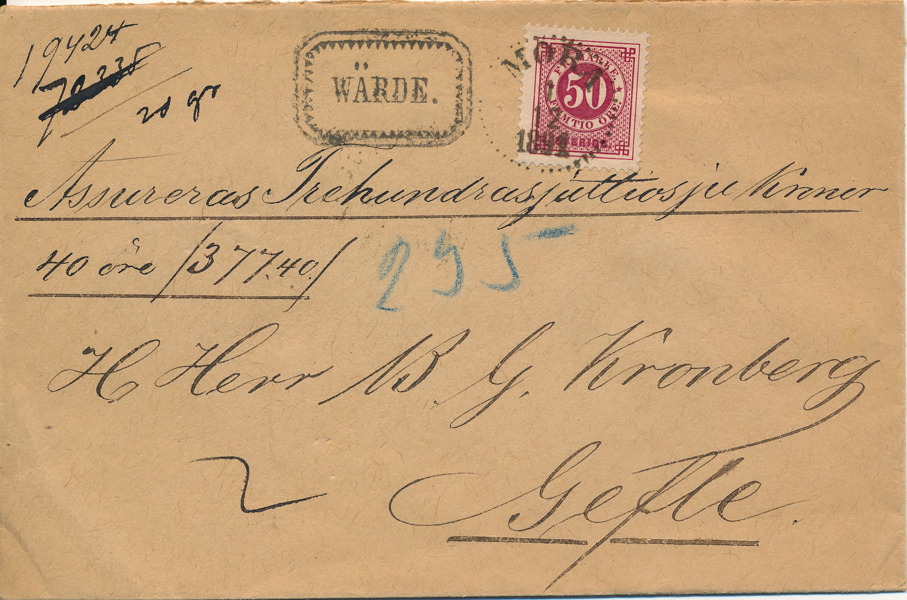 19424
20 gr
WÄRDE.
MORA
1
12
FRIMÄRKE
50
FEMTIO ÖRE
SVERIGE
Assureras Trehundrasjuttiosju Kronor
40 öre /377.40/
295
H Herr B G. Kronberg
Gefle.